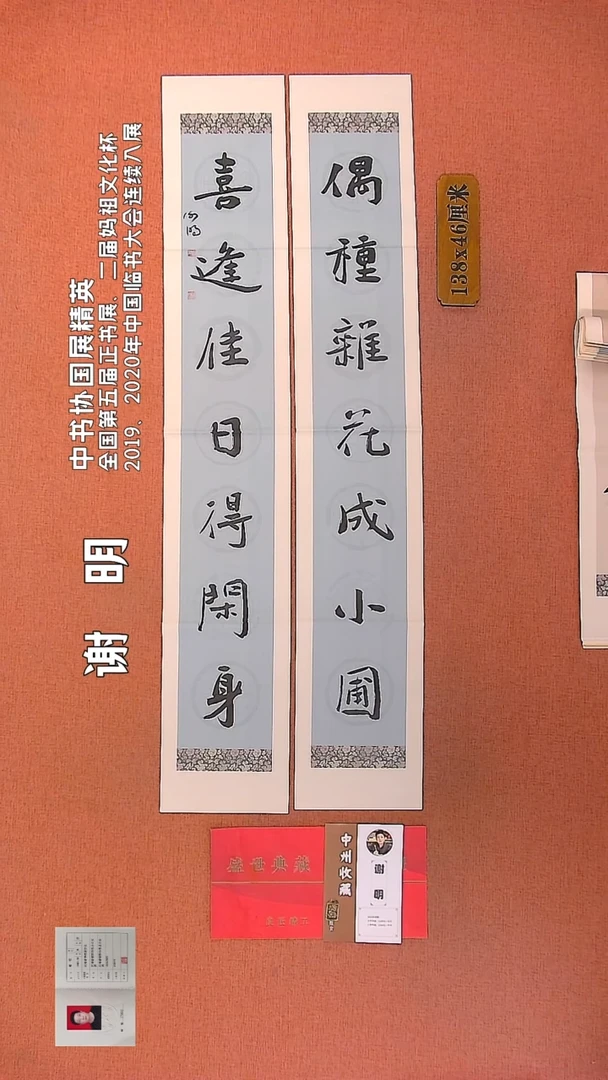 偶種雜花成小圃
喜逢佳日得閑身
谢明
138x46厘米
中书协国展精英
全国第五届正书展、二届妈祖文化杯
2019、2020年中国临书大会连续入展
谢 明
盛世典藏